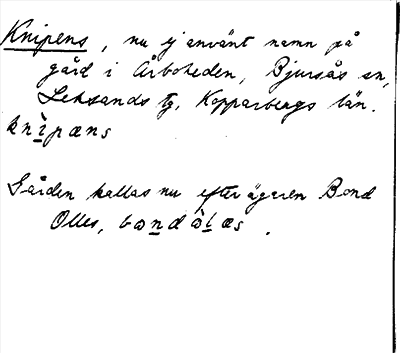 Knipens, nu ej använt namn på
gård i Årboheden, Bjursås sn,
Leksands tg, Kopparbergs län.
knìpæns
Gården kallas nu efter ägaren Bond
Olles, bondòlæs.